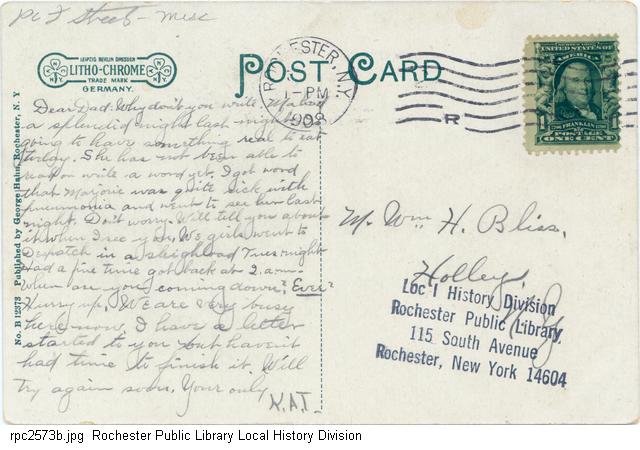 Pc F Street - Misc
LEIPZIG BERLIN DRESDEN
LITHO-CHROME
TRADE MARK
GERMANY.
N Y
N Y
POST CARD
ROCHESTER, N.Y.
1-PM
1908
R
UNITED STATES OF
AMERICA
FRANKLIN
POSTAGE
1 ONE CENT 1
No. B 12373 Published by George Hahn, Rochester, N. Y.
Dear Dad: Why don't you write. Ma had
a splendid night last night
going to have something real to eat
today. She has not been able to
read or write a word yet. I got word
that Marjorie was quite sick with
pneumonia and went to see her last
night. Don't worry. Will tell you about
it when I see you. We girls went to
Despatch in a sleighload Tues. night
Had a fine time got back at 2. a.m.
When are you coming down? Ever?
Hurry up. We are very busy
here now. I have a letter
started to you but haven't
had time to finish it. Will
try again soon. Your only
K.A.T.
Mr. Wm H. Bliss,
Holley,
N.Y.
Loc l History Division
Rochester Public Library
115 South Avenue
Rochester, New York 14604
rpc2573b.jpg Rochester Public Library Local History Division